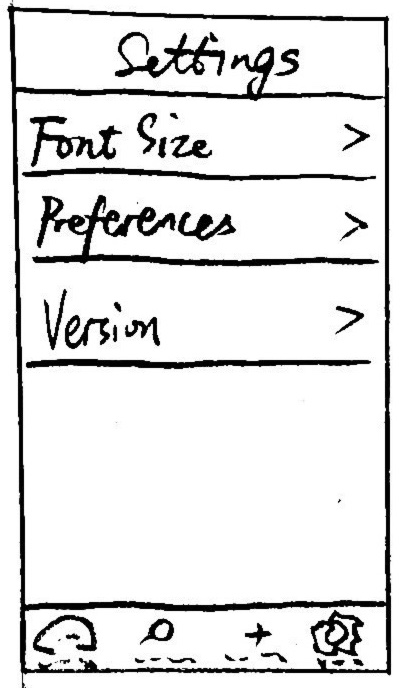 Settings
Font Size >
Preferences >
Version >